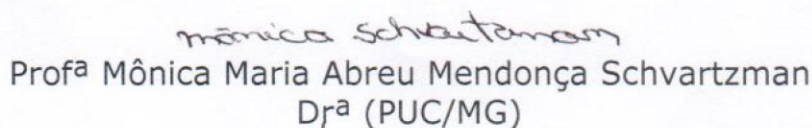 mônica Schvartzman
Profª Mônica Maria Abreu Mendonça Schvartzman
Drª (PUC/MG)